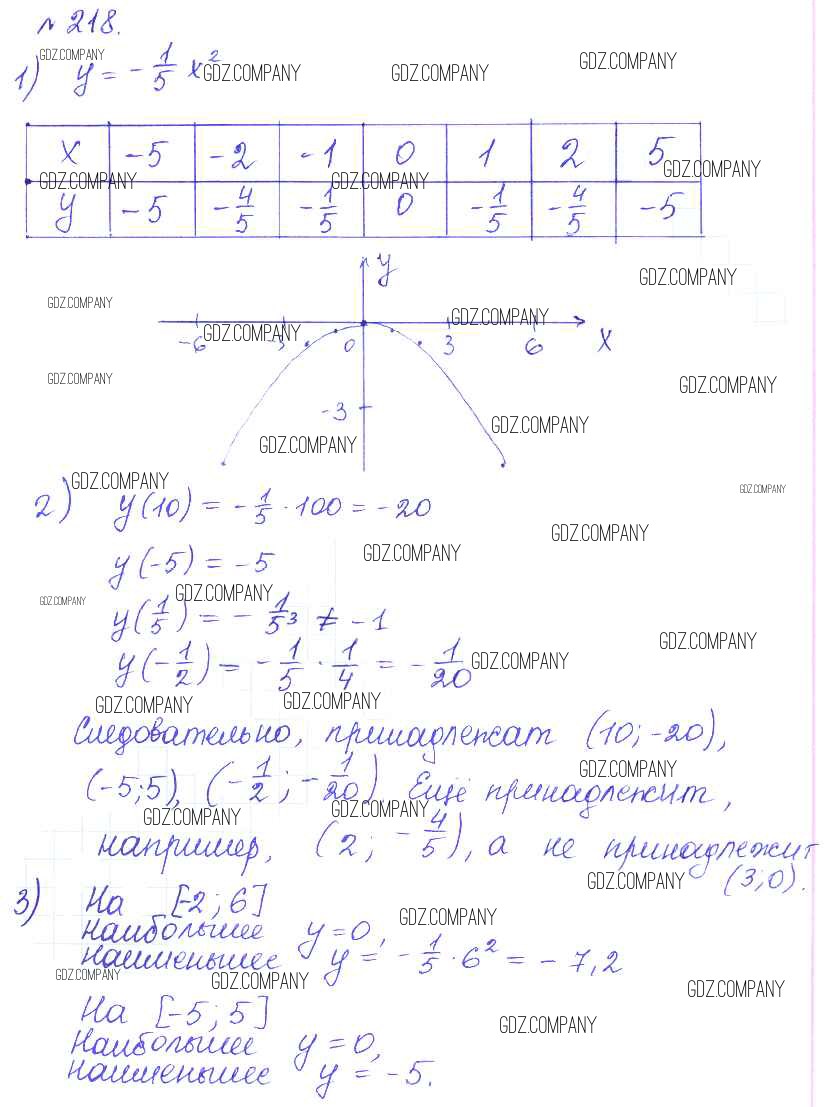 № 218.
GDZ.COMPANY
1) y = -1/5 x² GDZ.COMPANY GDZ.COMPANY GDZ.COMPANY
x -5 -2 -1 0 1 2 5
GDZ.COMPANY GDZ.COMPANY GDZ.COMPANY
y -5 -4/5 -1/5 0 -1/5 -4/5 -5
y
GDZ.COMPANY
GDZ.COMPANY GDZ.COMPANY
GDZ.COMPANY
-6 -3 0 3 6 x
GDZ.COMPANY GDZ.COMPANY
-3
GDZ.COMPANY
GDZ.COMPANY
GDZ.COMPANY GDZ.COMPANY
2) y(10) = -1/5 · 100 = -20
GDZ.COMPANY
GDZ.COMPANY
y(-5) = -5
GDZ.COMPANY GDZ.COMPANY
y(1/5) = -1/5³ ≠ -1
GDZ.COMPANY
y(-1/2) = -1/5 · 1/4 = -1/20 GDZ.COMPANY
GDZ.COMPANY GDZ.COMPANY
Следовательно, принадлежат (10; -20),
GDZ.COMPANY
(-5;5), (-1/2; -1/20) Ещё принадлежит,
GDZ.COMPANY GDZ.COMPANY
например, (2; -4/5), а не принадлежит
GDZ.COMPANY (3;0).
3) На [-2; 6]
GDZ.COMPANY
наибольшее y=0,
наименьшее y = -1/5 · 6² = -7,2
GDZ.COMPANY GDZ.COMPANY GDZ.COMPANY
На [-5; 5]
GDZ.COMPANY
Наибольшее y=0,
наименьшее y = -5.